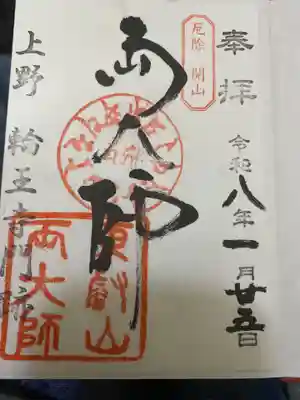 奉拝
令和八年一月廿五日
厄除 開山
両大師
両大師
上野 輪王寺門跡